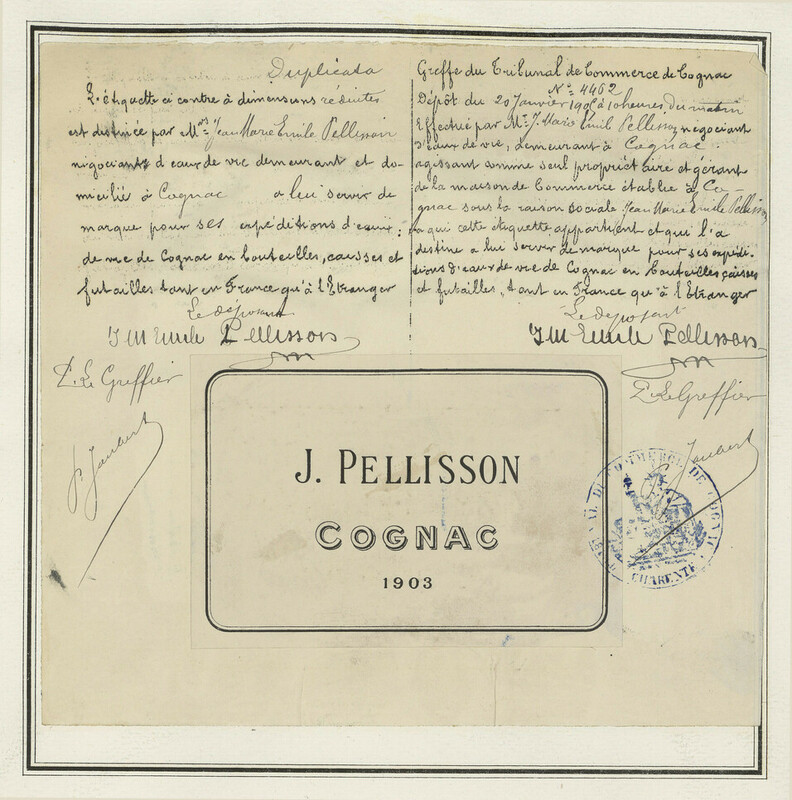 Duplicata
L'étiquette ci contre à dimensions réduites
est destinée par Mrs Jean Marie Emile Pellisson
négociants d'eaux de vie demeurant et do-
micilié à Cognac a lui servir de
marque pour ses expéditions d'eaux:
de vie de Cognac en bouteilles, caisses et
futailles tant en France qu'à l'Etranger
Le déposant
J M Emile Pellisson
P. Le Greffier
Jaubert
Greffe du Tribunal de Commerce de Cognac
No 4462
Dépôt du 20 Janvier à 10 heures du matin
Effectué par Mr J. Marie Emile Pellisson négociant
d'eaux de vie, demeurant à Cognac.
agissant comme seul propriétaire et gérant
de la maison de Commerce établie à Co-
gnac sous la raison sociale Jean Marie Emile Pellisson
a qui cette étiquette appartient et qui l'a
destine a lui servir de marque pour ses expédi-
tions d'eaux de vie de Cognac en bouteilles caisses
et futailles, tant en France qu'à l'Etranger
Le déposant
J M Emile Pellisson
P. Le Greffier
Jaubert
J. PELLISSON
COGNAC
1903
TRIBUNAL DE COMMERCE DE COGNAC
CHARENTE